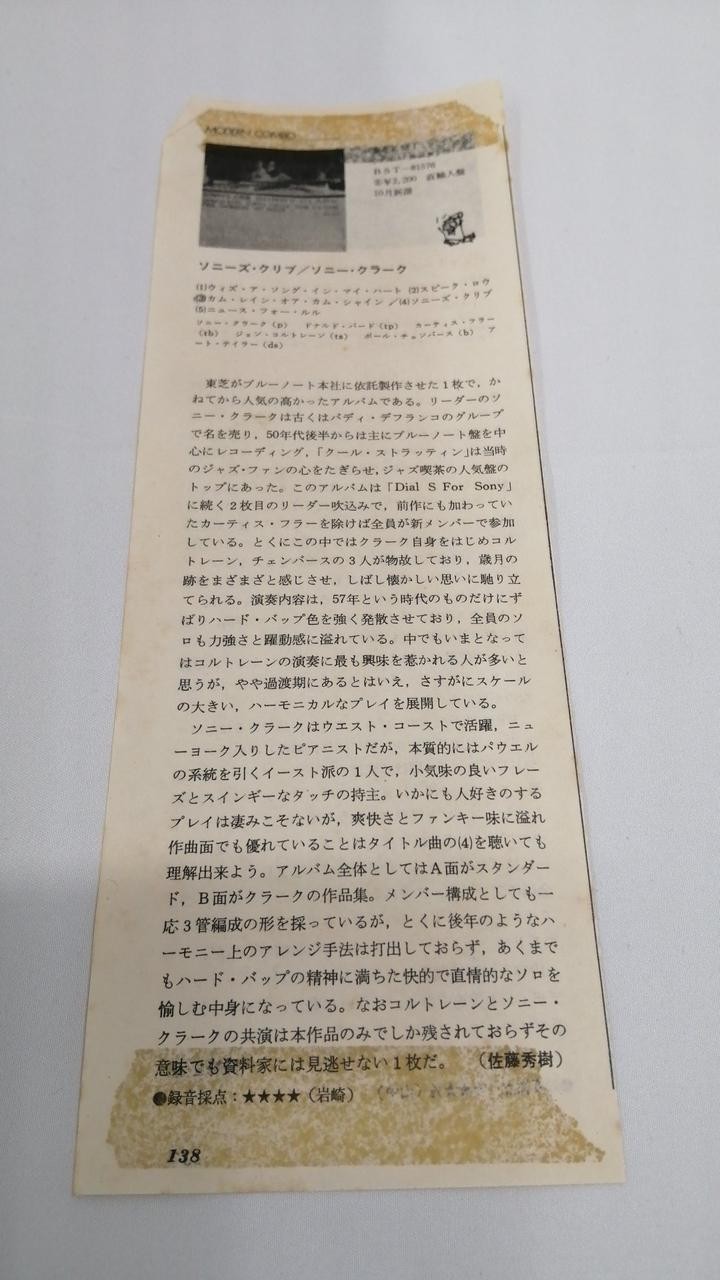 MODERN COMBO
BST-81576
㊣¥2,200 直輸入盤
10月新譜
ソニーズ・クリブ／ソニー・クラーク
(1)ウィズ・ア・ソング・イン・マイ・ハート (2)スピーク・ロウ
(3)カム・レイン・オア・カム・シャイン ／(4)ソニーズ・クリブ
(5)ニュース・フォー・ルル
ソニー・クラーク (p) ドナルド・バード (tp) カーティス・フラー
(tb) ジョン・コルトレーン (ts) ポール・チェンバース (b) ア
ート・テイラー (ds)
東芝がブルーノート本社に依託製作させた１枚で，か
ねてから人気の高かったアルバムである。リーダーのソ
ニー・クラークは古くはバディ・デフランコのグループ
で名を売り，50年代後半からは主にブルーノート盤を中
心にレコーディング，「クール・ストラッティン」は当時
のジャズ・ファンの心をたぎらせ，ジャズ喫茶の人気盤の
トップにあった。このアルバムは「Dial S For Sony」
に続く２枚目のリーダー吹込みで，前作にも加わってい
たカーティス・フラーを除けば全員が新メンバーで参加
している。とくにこの中ではクラーク自身をはじめコル
トレーン，チェンバースの３人が物故しており，歳月の
跡をまざまざと感じさせ，しばし懐かしい思いに馳り立
てられる。演奏内容は，57年という時代のものだけにず
ばりハード・バップ色を強く発散させており，全員のソ
ロも力強さと躍動感に溢れている。中でもいまとなって
はコルトレーンの演奏に最も興味を惹かれる人が多いと
思うが，やや過渡期にあるとはいえ，さすがにスケール
の大きい，ハーモニカルなプレイを展開している。
ソニー・クラークはウエスト・コーストで活躍，ニュ
ーヨーク入りしたピアニストだが，本質的にはパウエル
の系統を引くイースト派の１人で，小気味の良いフレー
ズとスインギーなタッチの持主。いかにも人好きのする
プレイは凄みこそないが，爽快さとファンキー味に溢れ
作曲面でも優れていることはタイトル曲の(4)を聴いても
理解出来よう。アルバム全体としてはＡ面がスタンダー
ド，Ｂ面がクラークの作品集。メンバー構成としても一
応３管編成の形を採っているが，とくに後年のようなハ
ーモニー上のアレンジ手法は打出しておらず，あくまで
もハード・バップの精神に満ちた快的で直情的なソロを
愉しむ中身になっている。なおコルトレーンとソニー・
クラークの共演は本作品のみでしか残されておらずその
意味でも資料家には見逃せない１枚だ。 （佐藤秀樹）
●録音採点：★★★★（岩崎）
138